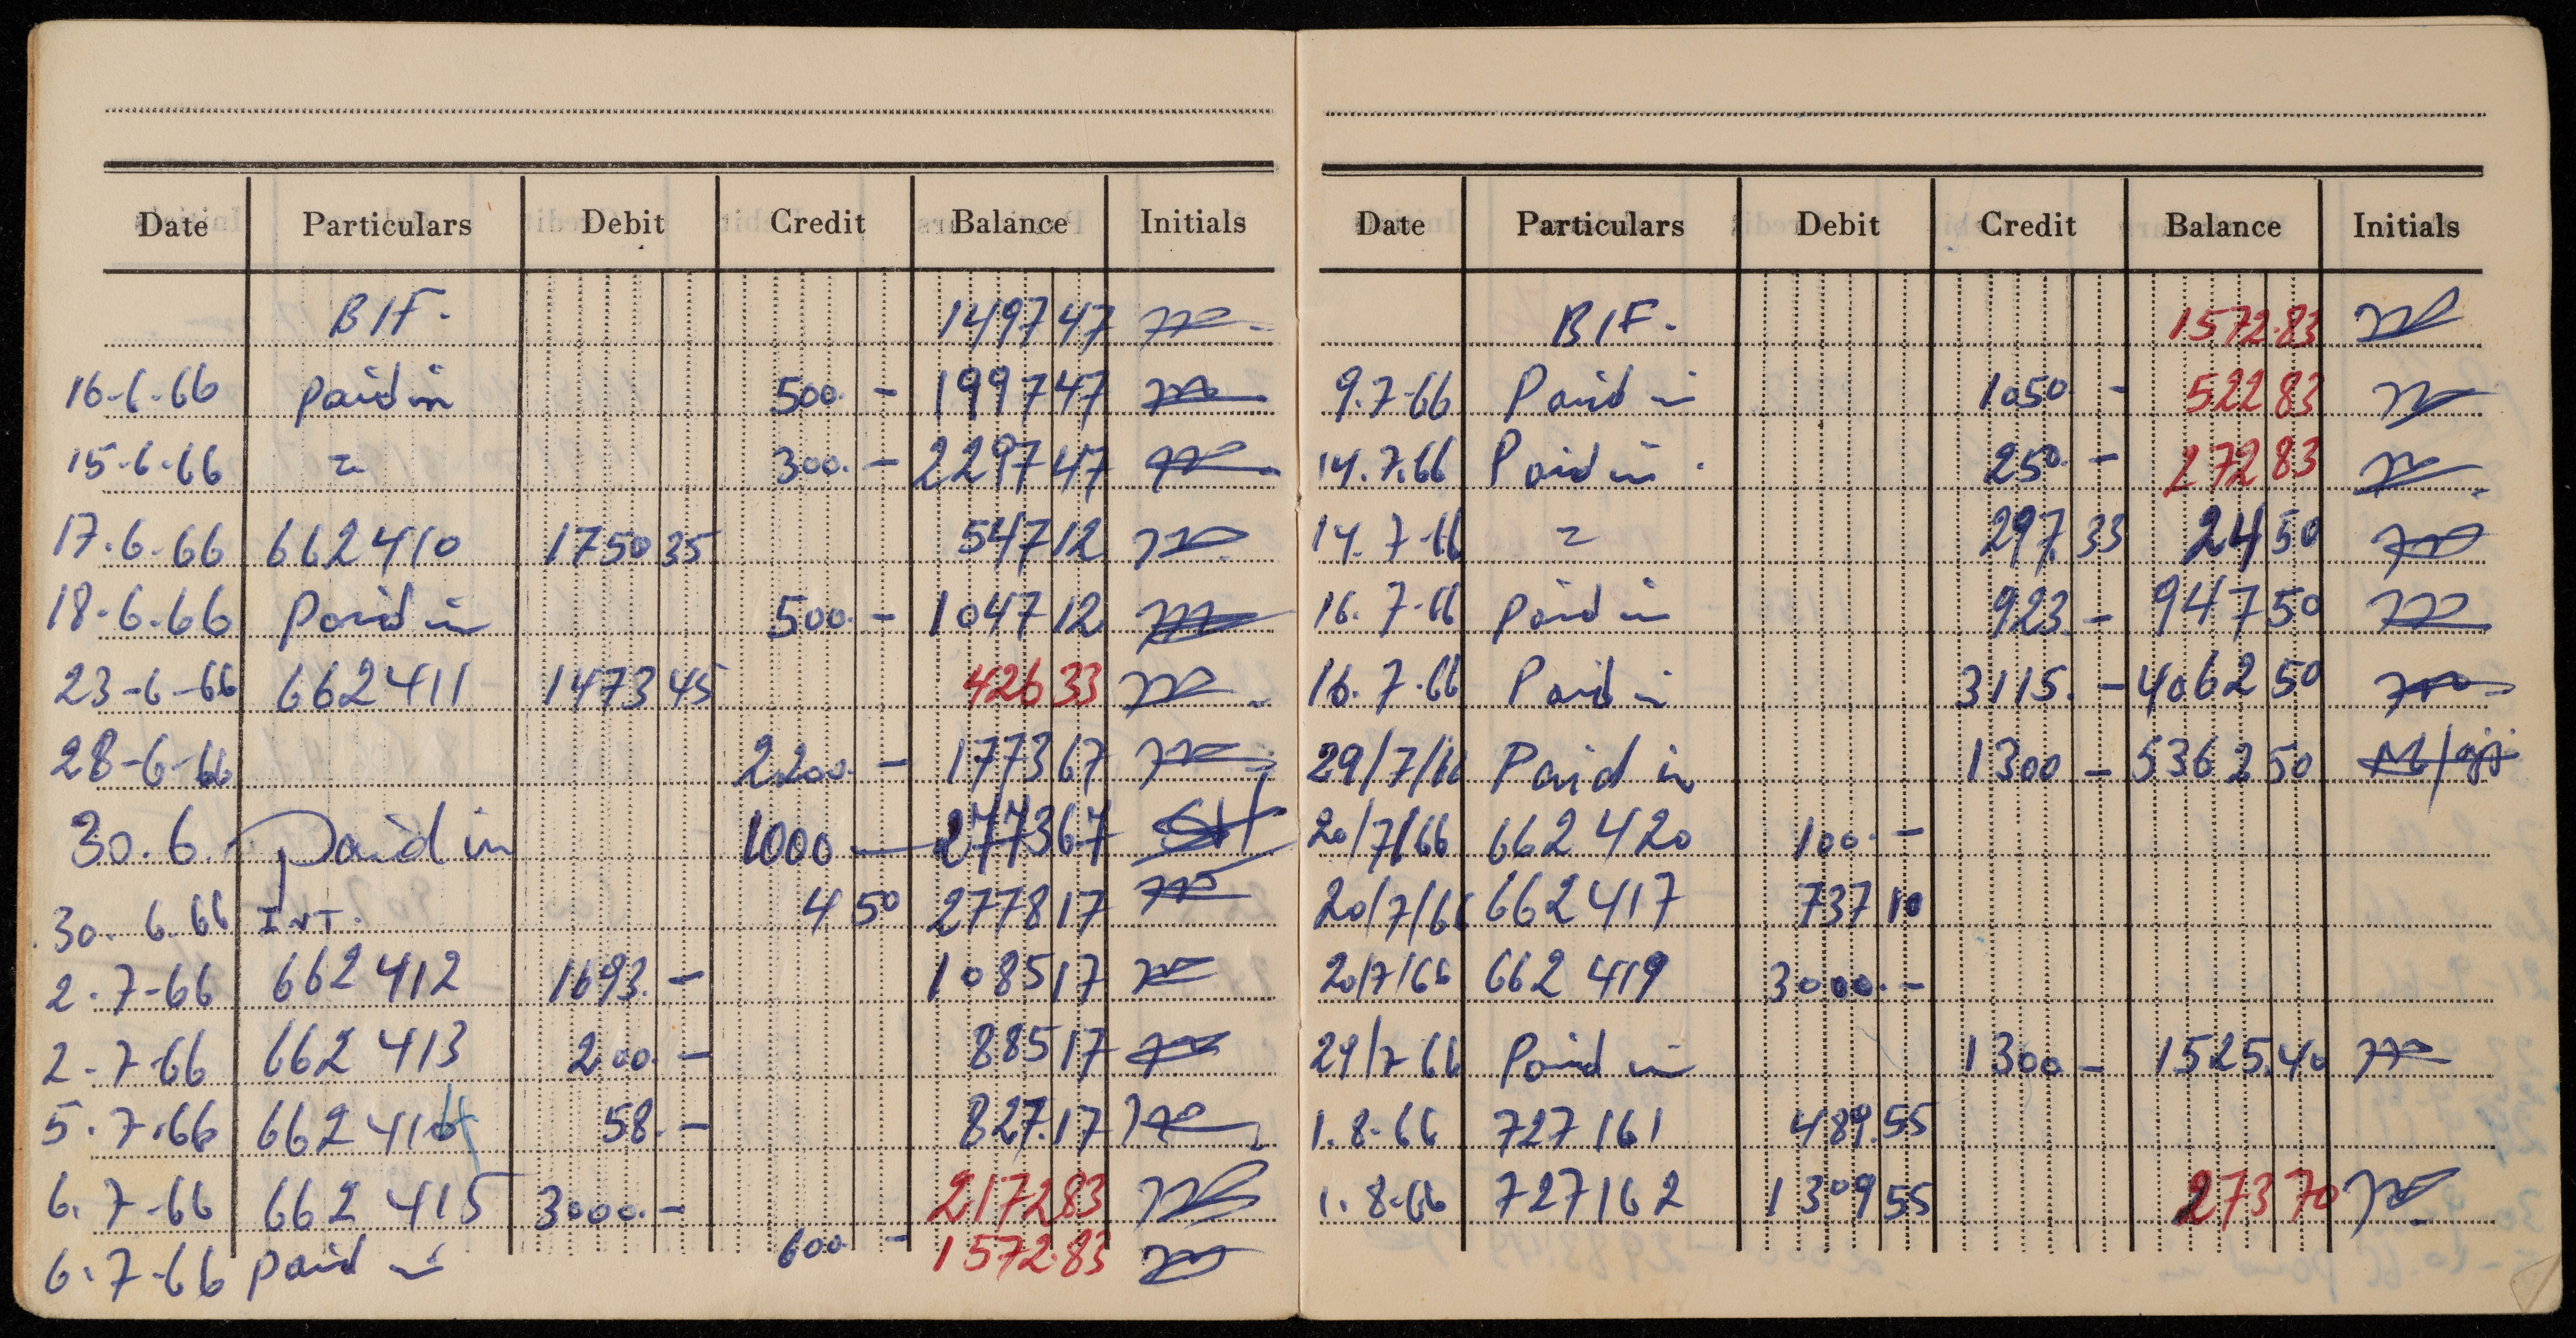 Date Particulars Debit Credit Balance Initials
B/F. 1497 47
16-6-66 paid in 500. - 1997 47
15-6-66 = 300. - 2297 47
17.6.66 662410 1750 35 547 12
18-6.66 Paid in 500. - 1047 12
23-6-66 662411 1473 45 426 33
28-6-66 2200. - 1773 67
30.6. Paid in 1000 — 2773 67
30. 6.66 INT. 4 50 2778 17
2.7-66 662412 1693. - 1085 17
2.7-66 662 413 200. - 885 17
5.7.66 662 414 58. - 827.17
6.7-66 662 415 3000. - 2172 83
6.7-66 paid in 600 - 1572.83
Date Particulars Debit Credit Balance Initials
B/F. 1572.83
9.7-66 Paid in 1050 - 522 83
14.7.66 Paid in. 250. - 272 83
14.7-66 = 297. 33 24 50
16.7-66 paid in 923. - 947 50
16.7-66 Paid in 3115. - 4062 50
29/7/66 Paid in 1300 - 5362 50
20/7/66 662 420 100. -
20/7/66 662 417 737 10
20/7/66 662 419 3000. -
29/7 66 Paid in 1300 - 1525.40
1.8-66 727 161 489.55
1.8-66 727162 1309 55 273 70